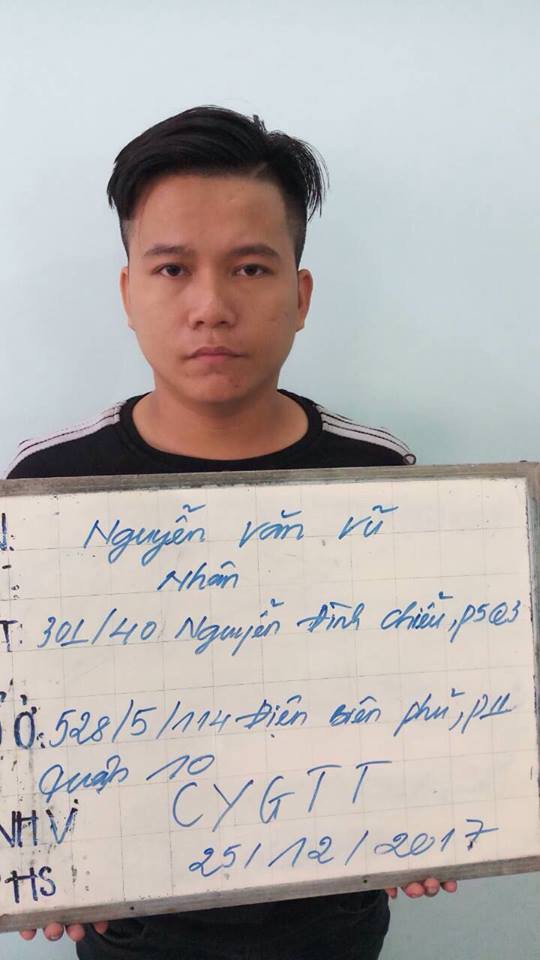 Nguyễn Văn Vũ
Nhân
T: 301/40 Nguyễn Đình Chiểu, P5Q3
Ở: 528/5/114 Điện Biên Phủ, P11
Quận 10
CYGTT
NH VI
25/12/2017
HS